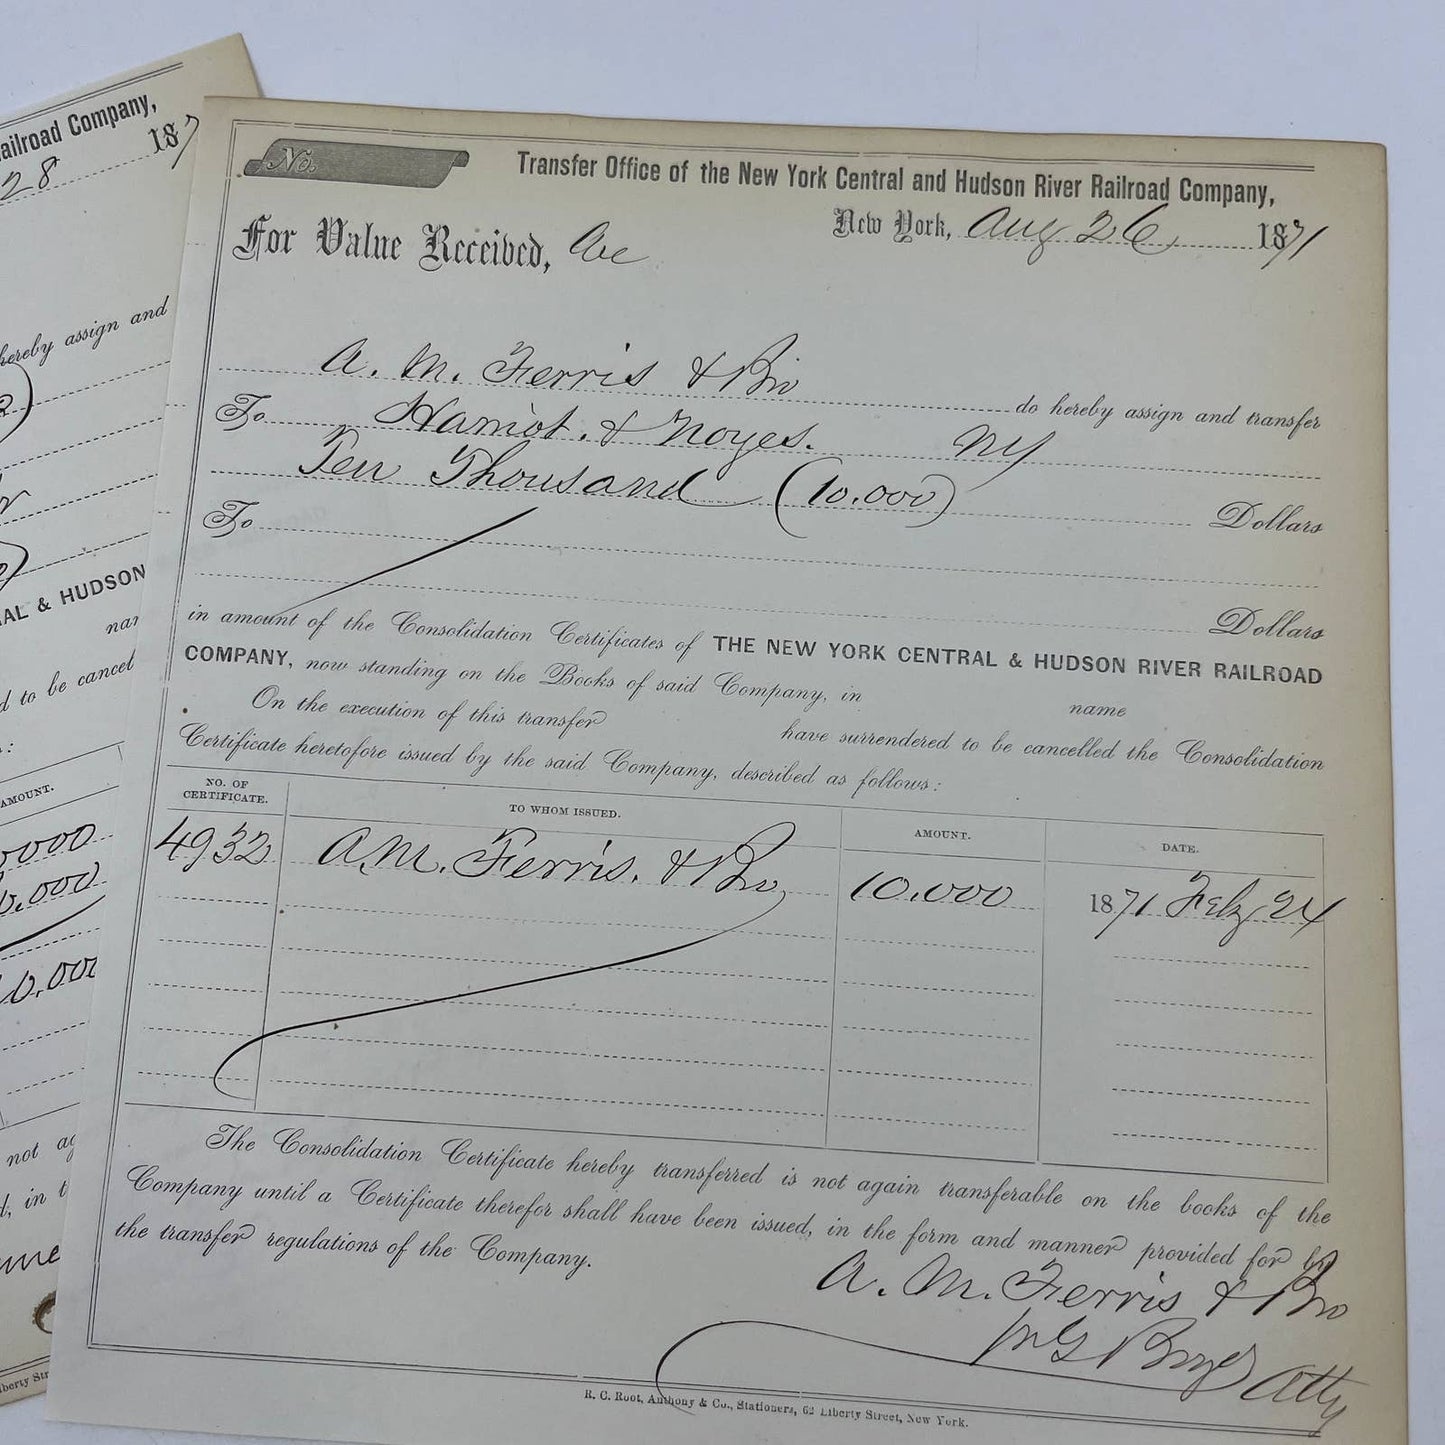 ailroad Company,
28 187
hereby assign and
AL & HUDSON
nar
d to be cancel
s:
AMOUNT.
0,000
not ag
d, in t
ame
iberty Str
No.
Transfer Office of the New York Central and Hudson River Railroad Company,
New York, Aug 26, 1871
For Value Received,
A. M. Ferris & Bro do hereby assign and transfer
To Harriot. & Noyes. NY
Ten Thousand (10.000) Dollars
To
Dollars
in amount of the Consolidation Certificates of THE NEW YORK CENTRAL & HUDSON RIVER RAILROAD
COMPANY, now standing on the Books of said Company, in name
On the execution of this transfer have surrendered to be cancelled the Consolidation
Certificate heretofore issued by the said Company, described as follows:
NO. OF CERTIFICATE. TO WHOM ISSUED. AMOUNT. DATE.
4932 A.M. Ferris. & Bro, 10.000 1871 Feby 24
The Consolidation Certificate hereby transferred is not again transferable on the books of the
Company until a Certificate therefor shall have been issued, in the form and manner provided for by
the transfer regulations of the Company.
A. M. Ferris & Bro
Atty
R. C. Root, Anthony & Co., Stationers, 62 Liberty Street, New York.